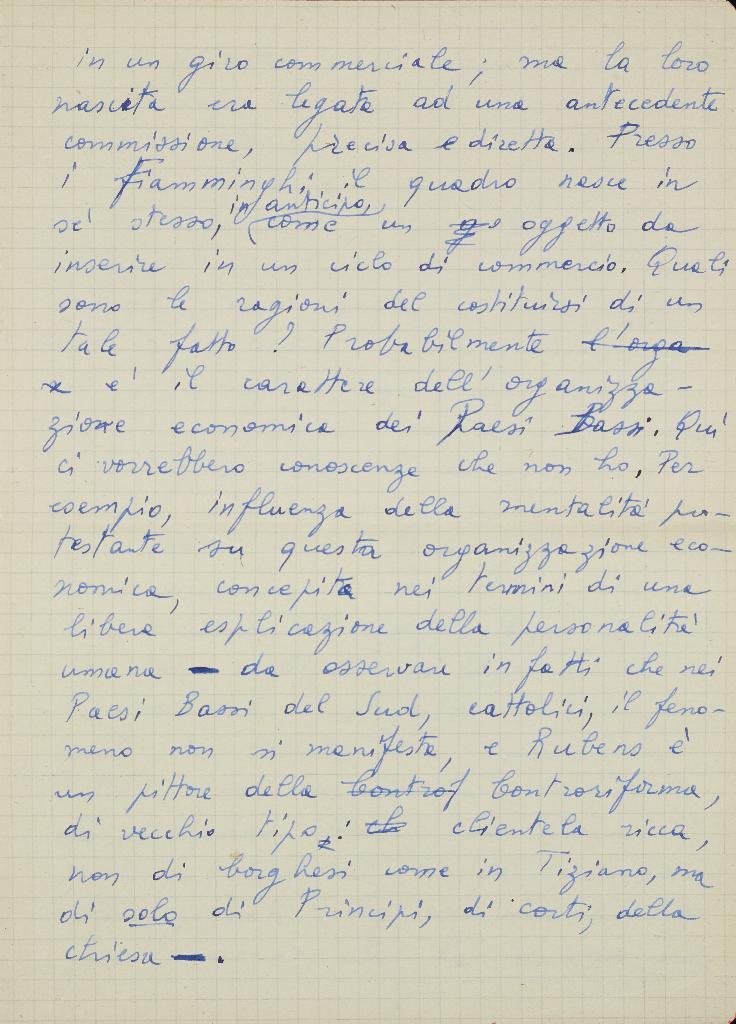 in un giro commerciale; ma la loro
nascita era legata ad una antecedente
commissione, precisa e diretta. Presso
i Fiamminghi il quadro nasce in
in anticipo,
sé stesso, come un oggetto da
inserire in un ciclo di commercio. Quali
sono le ragioni del costituirsi di un
tale fatto? Probabilmente l'orga
è il carattere dell'organizza-
zione economica dei Paesi Bassi. Qui
ci vorrebbero conoscenze che non ho, Per
esempio, influenza della mentalità pro-
testante su questa organizzazione eco-
nomica, concepita nei termini di una
libera esplicazione della personalità
umana — da osservare infatti che nei
Paesi Bassi del Sud, cattolici, il feno-
meno non si manifesta, e Rubens è
un pittore della Controf Controriforma,
di vecchio tipo: ch clientela ricca,
non di borghesi come in Tiziano, ma
di solo di Principi, di corti, della
chiesa —.